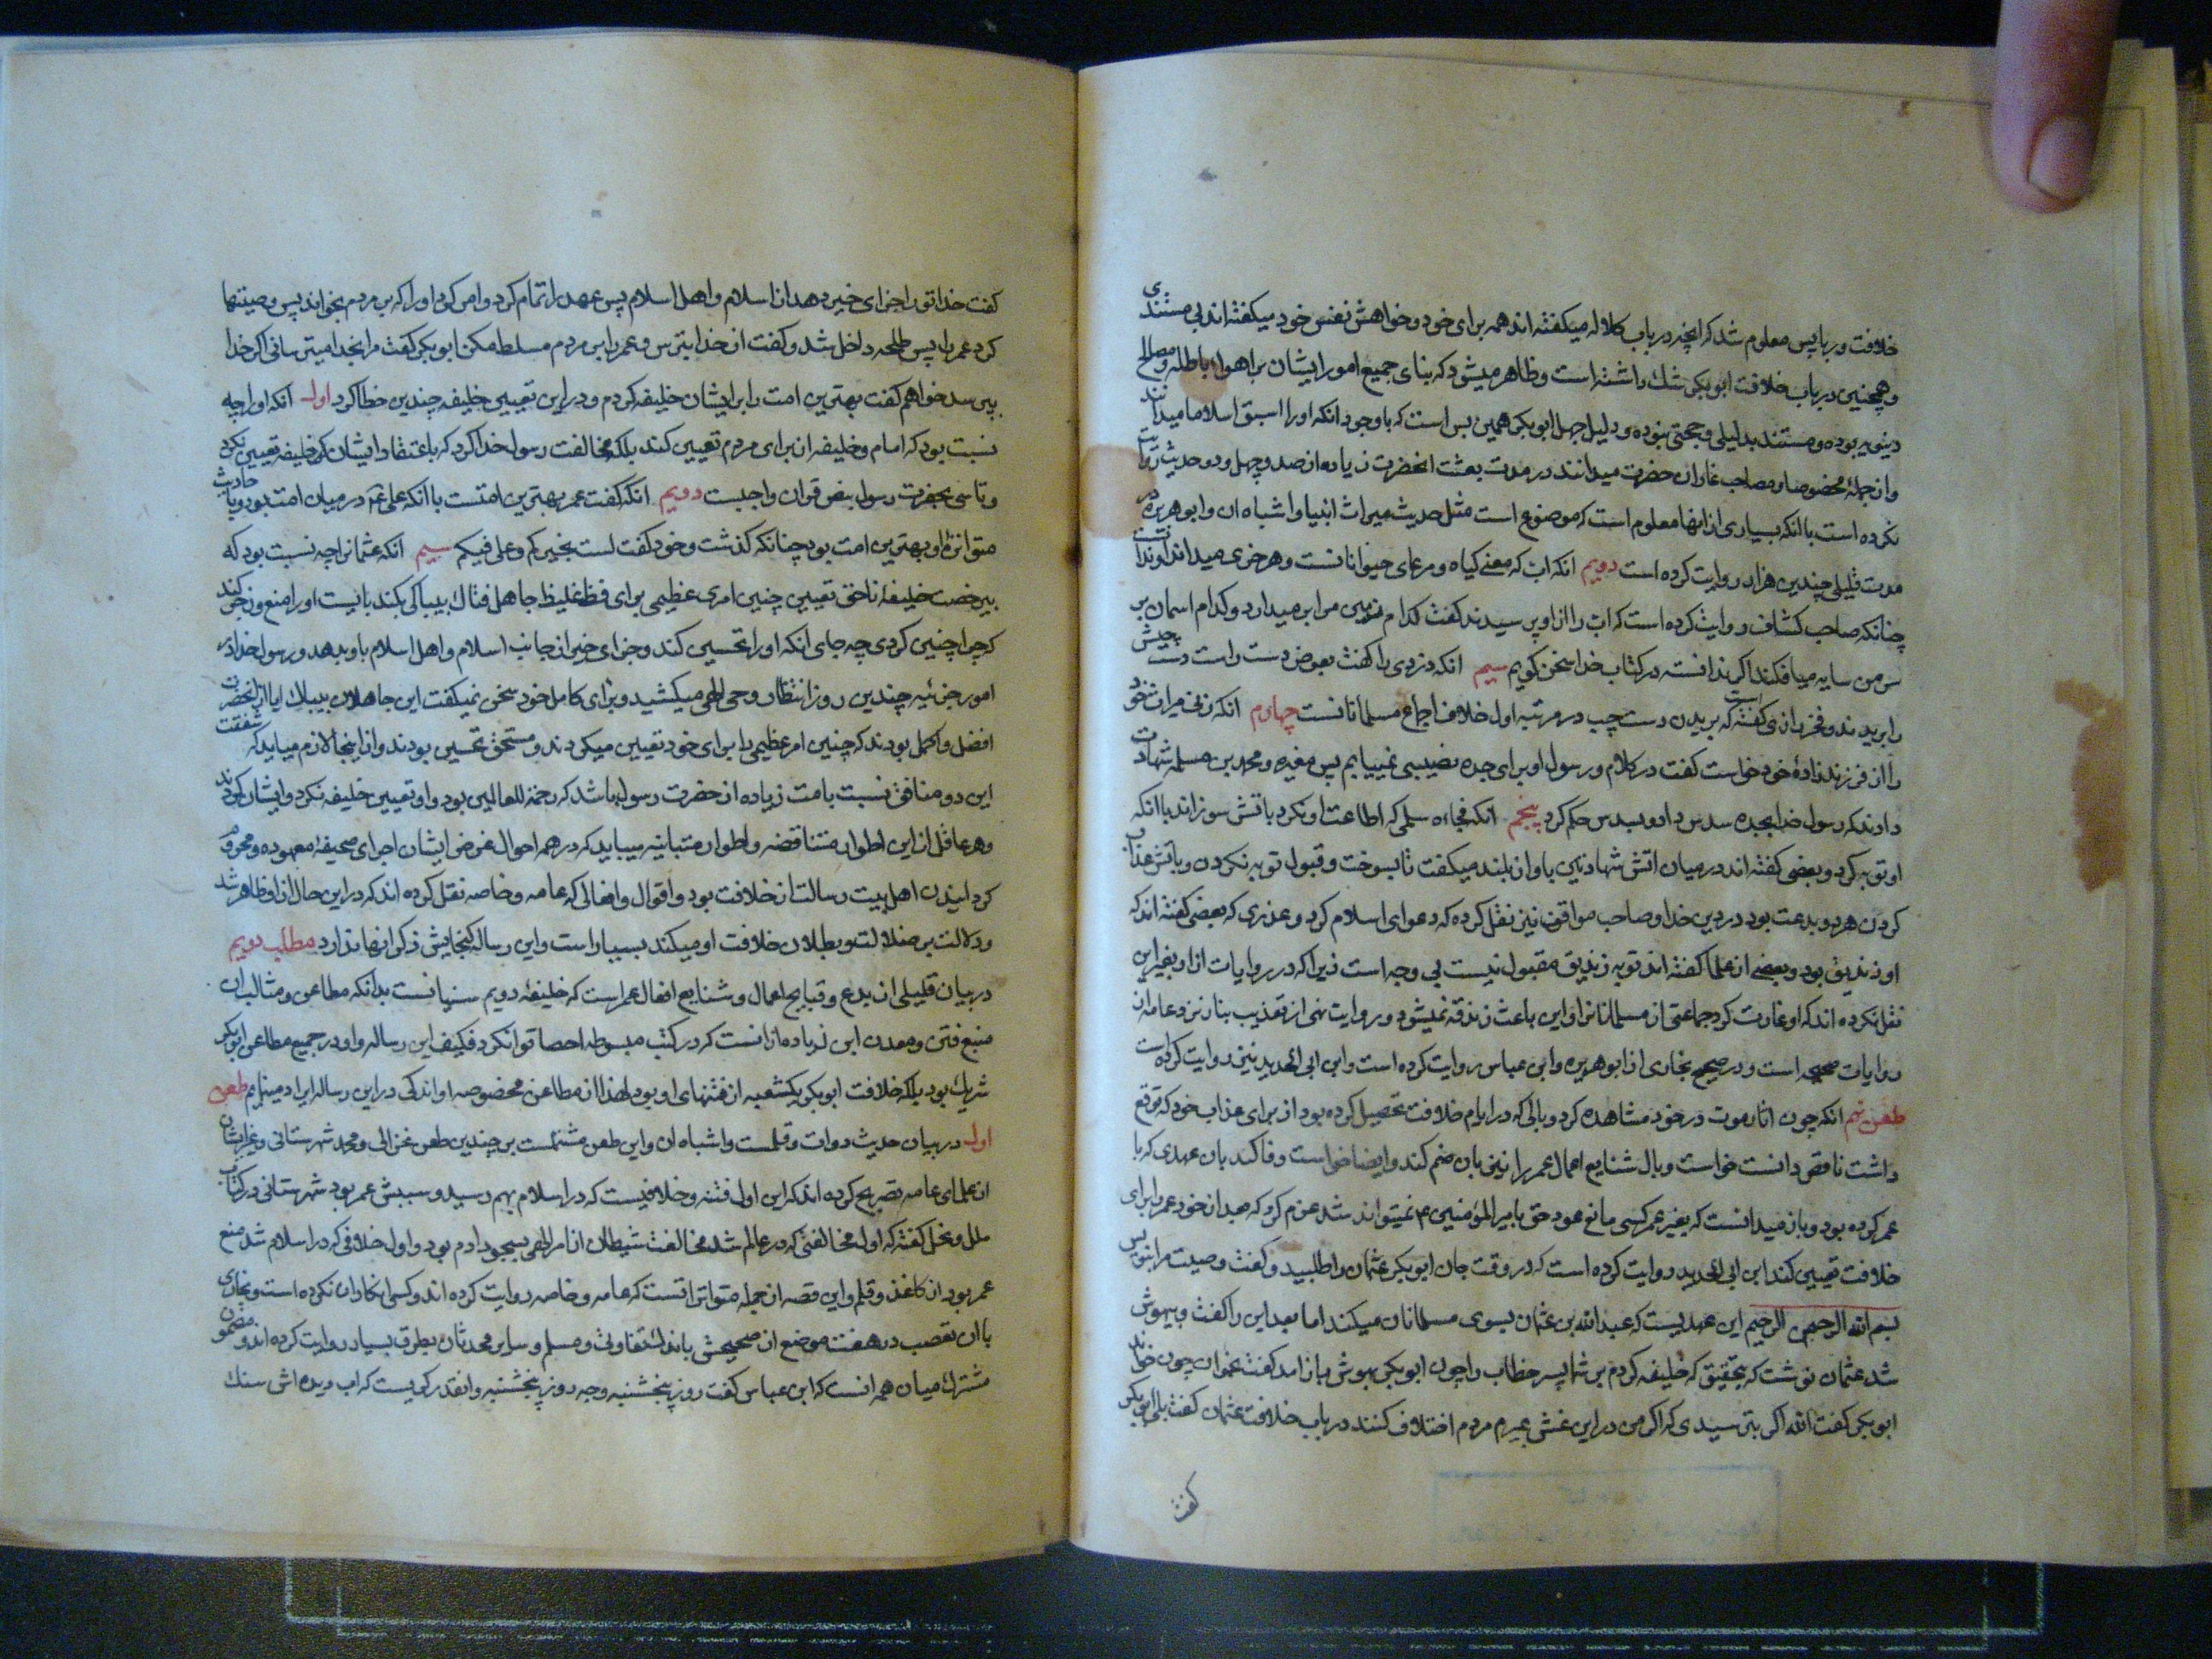 خلافت و ربا پس معلوم شد که انچه در باب کلاله میکفته اند همه برای خود و خواهش نفس خود میکفته اند بی مستندی
و همچنین در باب خلافت ابو بکر شک داشته است و ظاهر میشود که بنای جمیع امور ایشان بر اهواء باطله و مصالح
دنیویه بوده و مستند بدلیلی و حجتی نبوده و دلیل جهل ابو بکر همین بس است که با وجود انکه او را اسبق اسلاما میدانند
و از جمله مخصوصان و مصاحب غار ان حضرت میدانند در مدت بعثت انحضرت زیاده از صد و چهل و دو حدیث روایت
نکرده است با انکه بسیاری از انها معلوم است که موضوع است مثل حدیث میراث انبیا و اشباه ان و ابو هریره در
مدت قلیلی چندین هزار روایت کرده است دویم انکه اب که معنی کیاه و مرعای حیوانانست و هر خری میداند او ندانست
چنانکه صاحب کشاف روایت کرده است که اب را از او پرسیدند کفت کدام زمین مرا بر میدارد و کدام اسمان بر
سر من سایه میافکند اکر ندانسته در کتاب خدا سخن کویم سیم انکه دزدی را کفت بعوض دست راست دست چپش
را بریدند و فخر رازی کفته است که بریدن دست چپ در مرتبه اول خلاف اجماع مسلمانانست چهارم انکه زنی میراث خود
را از فرزند زاده خود خواست کفت در کلام و رسول او برای جده نصیبی نمییابم پس مغیره و محمد بن مسلمه شهادت
دادند که رسول خدا بجده سدس داد و بسدس حکم کرد پنجم انکه فجاءه سلمی که اطاعت او نکرد باتش سوزاند با انکه
او توبه کرد و بعضی کفته اند در میان اتش شهادتین باواز بلند میکفت تا بسوخت و قبول توبه نکردن و باتش عذاب
کردن هر دو بدعت بود در دین خدا و صاحب مواقف نیز نقل کرده که دعوای اسلام کرد و عذری که بعضی کفته اند که
او زندیق بود و بعضی از علما کفته اند توبه زندیق مقبول نیست بی وجه است زیرا که در روایات از او بغیر این
نقل نکرده اند که او غارت کرد جماعتی از مسلمانان را و این باعث زندقه نمیشود و روایت نهی از تعذیب بنار نزد عامه از
روایات صحیحه است و در صحیح بخاری از ابو هریره و ابن عباس روایت کرده است و ابن ابی الحدید نیز روایت کرده است
طعن نهم انکه چون اثار موت در خود مشاهده کرد و بالی که در ایام خلافت تحصیل کرده بود از برای عذاب خود که توقع
داشت ناقص دانست خواست وبال شنایع اعمال عمر را نیز بان ضم کند و ایضا خواست وفا کند بان عهدی که با
عمر کرده بود و باز میدانست که بغیر عمر کسی مانع عود حق بامیر المؤمنین ع نمیتواند شد عزم کرد که بعد از خود عمر را برای
خلافت تعیین کند ابن ابی الحدید روایت کرده است که در وقت جان ابو بکر عثمان را طلبید و کفت وصیت مرا بنویس
بسم الله الرحمن الرحیم این عهدیست که عبد الله بن عثمان بسوی مسلمانان میکند اما بعد این را کفت و بیهوش
شد عثمان نوشت که بتحقیق که خلیفه کردم بر شما پسر خطاب را چون ابو بکر بهوش باز امد کفت بخوان چون خواند
ابو بکر کفت الله اکبر ترسیدی که اکر من در این غشی بمیرم مردم اختلاف کنند در باب خلافت عثمان کفت بلی ابو بکر
کفت
کفت خدا تو را جزای خیر دهد از اسلام و اهل اسلام پس عهد را تمام کرد و امر کرد او را که بر مردم بخواند پس وصیتها
کرد عمر را پس طلحه داخل شد و کفت از خدا بترس و عمر را بر مردم مسلط مکن ابو بکر کفت مرا بخدا میترسانی اکر خدا
بپرسد خواهم کفت بهترین امت را بر ایشان خلیفه کردم و در این تعیین خلیفه چندین خطا کرد اول انکه او را چه
نسبت بود که امام و خلیفه از برای مردم تعیین کند بلکه مخالفت رسول خدا کرد که باعتقاد ایشان که خلیفه تعیین نکرد
و تاسی بحضرت رسول بنص قران واجبست دویم انکه کفت عمر بهترین امتست با انکه علی ع در میان امت بود و باحادیث
متواتره او بهترین امت بود چنانکه کذشت و خود کفت لست بخیرکم و علی فیکم سیم انکه عثمان را چه نسبت بود که
بیرخصت خلیفه ناحق تعیین چنین امری عظیمی برای فظ غلیظ جاهل فتاک بیباکی بکند بایست او را منع و زجر کند
که چرا چنین کردی چه جای انکه او را تحسین کند و جزای خیر از جانب اسلام و اهل اسلام باو بدهد و رسول خدا در
امور جزئیه چندین روز انتظار وحی الهی میکشید و برای کامل خود سخن نمیکفت این جاهلان بیباک ایا از انحضرت
افضل و اکمل بودند که چنین امر عظیمی را برای خود تعیین میکردند و مستحق تحسین بودند و از اینجا لازم میاید که شفقت
این دو منافق نسبت بامت زیاده از حضرت رسول باشد که رحمة للعالمین بود و او تعیین خلیفه نکرد و ایشان کردند
و هر عاقل از این اطوار متناقضه و اطوار متباینه مییابد که در همه احوال غرض ایشان اجرای صحیفه معهوده و محروم
کردانیدن اهل بیت رسالت از خلافت بود و اقوال و افعالی که عامه و خاصه نقل کرده اند که در این حال از او ظاهر شد
و دلالت بر ضلالت و بطلان خلافت او میکند بسیار است و این رساله کنجایش ذکر انها ندارد مطلب دویم
در بیان قلیلی از بدع و قبایح اعمال و شنایع افعال عمر است که خلیفه دویم سنیانست بدانکه مطاعن و مثالب ان
منبع فتن و معدن ابن زیاده از انست که در کتب مبسوطه احصا توان کرد فکیف این رساله و او در جمیع مطاعن ابو بکر
شریک بود بلکه خلافت ابو بکر یکشعبه از فتنهای او بود لهذا از مطاعن مخصوصه او اندکی در این رساله ایراد مینمایم طعن
اول در بیان حدیث دوات و قلمست و اشباه ان و این طعن مشتملست بر چندین طعن غزالی و محمد شهرستانی و غیر ایشان
از علمای عامه تصریح کرده اند که این اول فتنه و خلافیست که در اسلام بهم رسید و سببش عمر بود شهرستانی در کتاب
ملل و نحل کفته که اول مخالفتی که در عالم شد مخالفت شیطان از امر الهی بسجود ادم بود و اول خلافی که در اسلام شد منع
عمر بود از کاغذ و قلم و این قصه از جمله متواتراتست که عامه و خاصه روایت کرده اند و کسی انکار ان نکرده است و بخاری
با ان تعصب در هفت موضع از صحیحش باندک تفاوتی و مسلم و سایر محدثان بطرق بسیار روایت کرده اند و مضمون
مشترک میان همه انست که ابن عباس کفت روز پنجشنبه و چه روز پنجشنبه و انقدر کریست که اب دیده اش سنک